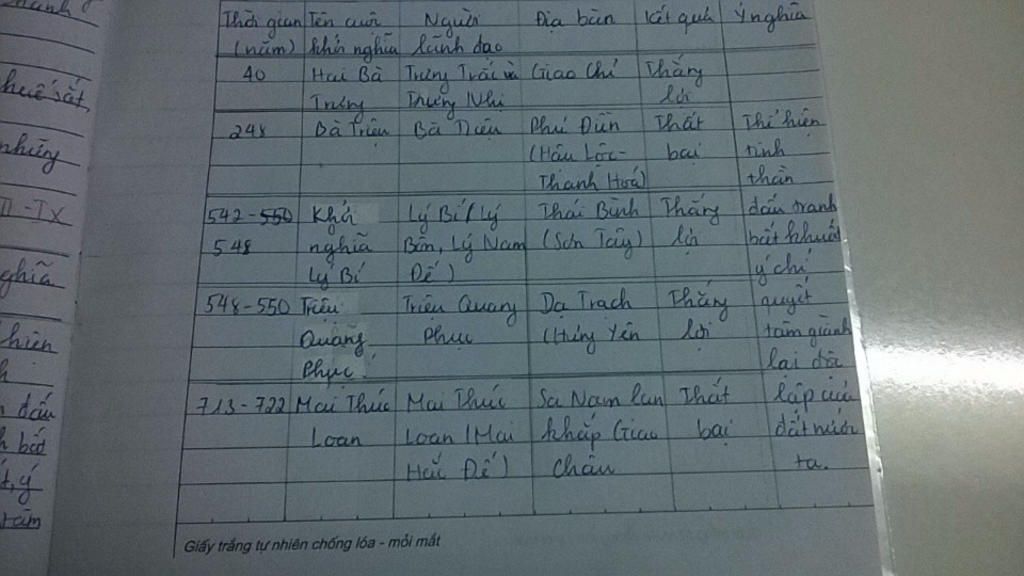 Thời gian Tên cuộc Người Địa bàn Kết quả Ý nghĩa
(năm) khởi nghĩa lãnh đạo
40 Hai Bà Trưng Trắc và Giao Chỉ Thắng
huế sắt, Trưng Trưng Nhị lợi
248 Bà Triệu Bà Triệu Phú Điền Thất Thể hiện
những (Hậu Lộc- bại tinh
Thanh Hoá) thần
542-550 Khởi Lý Bí (Lý Thái Bình Thắng đấu tranh
548 nghĩa Bôn, Lý Nam (Sơn Tây) lợi bất khuất
nghĩa Lý Bí Đế) ý chí
548-550 Triệu Triệu Quang Dạ Trạch Thắng quyết
hiện Quang Phục (Hưng Yên lợi tâm giành
Phục lại độc
713-722 Mai Thúc Mai Thúc Sa Nam lan Thất lập của
đấu
bất Loan Loan (Mai khắp Giao bại đất nước
ý Hắc Đế) Châu ta.
tâm
Giấy trắng tự nhiên chống lóa - mỏi mắt